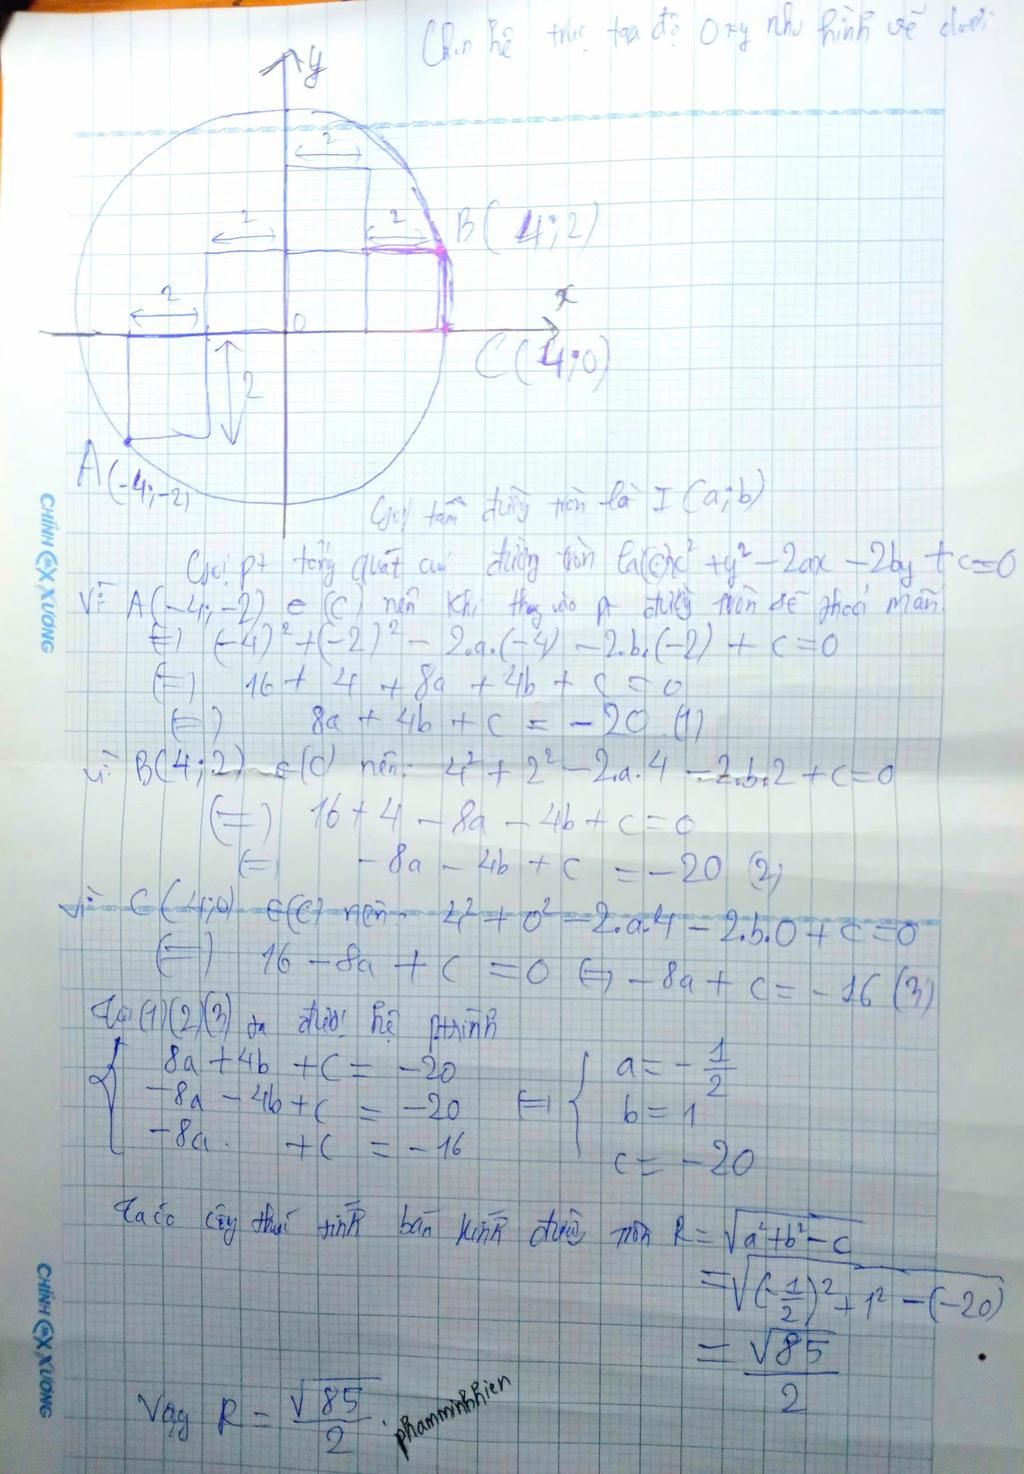 Chọn hệ trục tọa độ Oxy như hình vẽ dưới
y
2
2
2
B(4;2)
2
x
0
C(4;0)
2
A(-4;-2)
Gọi tâm đường tròn là I(a;b)
Gọi pt tổng quát của đường tròn là (C) x² + y² - 2ax - 2by + c = 0
Vì A(-4;-2) ∈ (C) nên khi thay vào pt đường tròn sẽ thoả mãn
⇔ (-4)² + (-2)² - 2.a.(-4) - 2.b.(-2) + c = 0
⇔ 16 + 4 + 8a + 4b + c = 0
⇔ 8a + 4b + c = -20 (1)
Vì B(4;2) ∈ (C) nên: 4² + 2² - 2.a.4 - 2.b.2 + c = 0
⇔ 16 + 4 - 8a - 4b + c = 0
⇔ -8a - 4b + c = -20 (2)
Vì C(4;0) ∈ (C) nên 4² + 0² - 2.a.4 - 2.b.0 + c = 0
⇔ 16 - 8a + c = 0 ⇔ -8a + c = -16 (3)
Từ (1)(2)(3) ta được hệ ptrình
8a + 4b + c = -20
-8a - 4b + c = -20
-8a. + c = -16
⇔
a = -1/2
b = 1
c = -20
Ta có công thức tính bán kính đường tròn R = √(a² + b² - c)
= √((-1/2)² + 1² - (-20))
= √85/2
Vậy R = √85/2.
phamminhhien
CHÍNH XƯƠNG
CHÍNH XƯƠNG